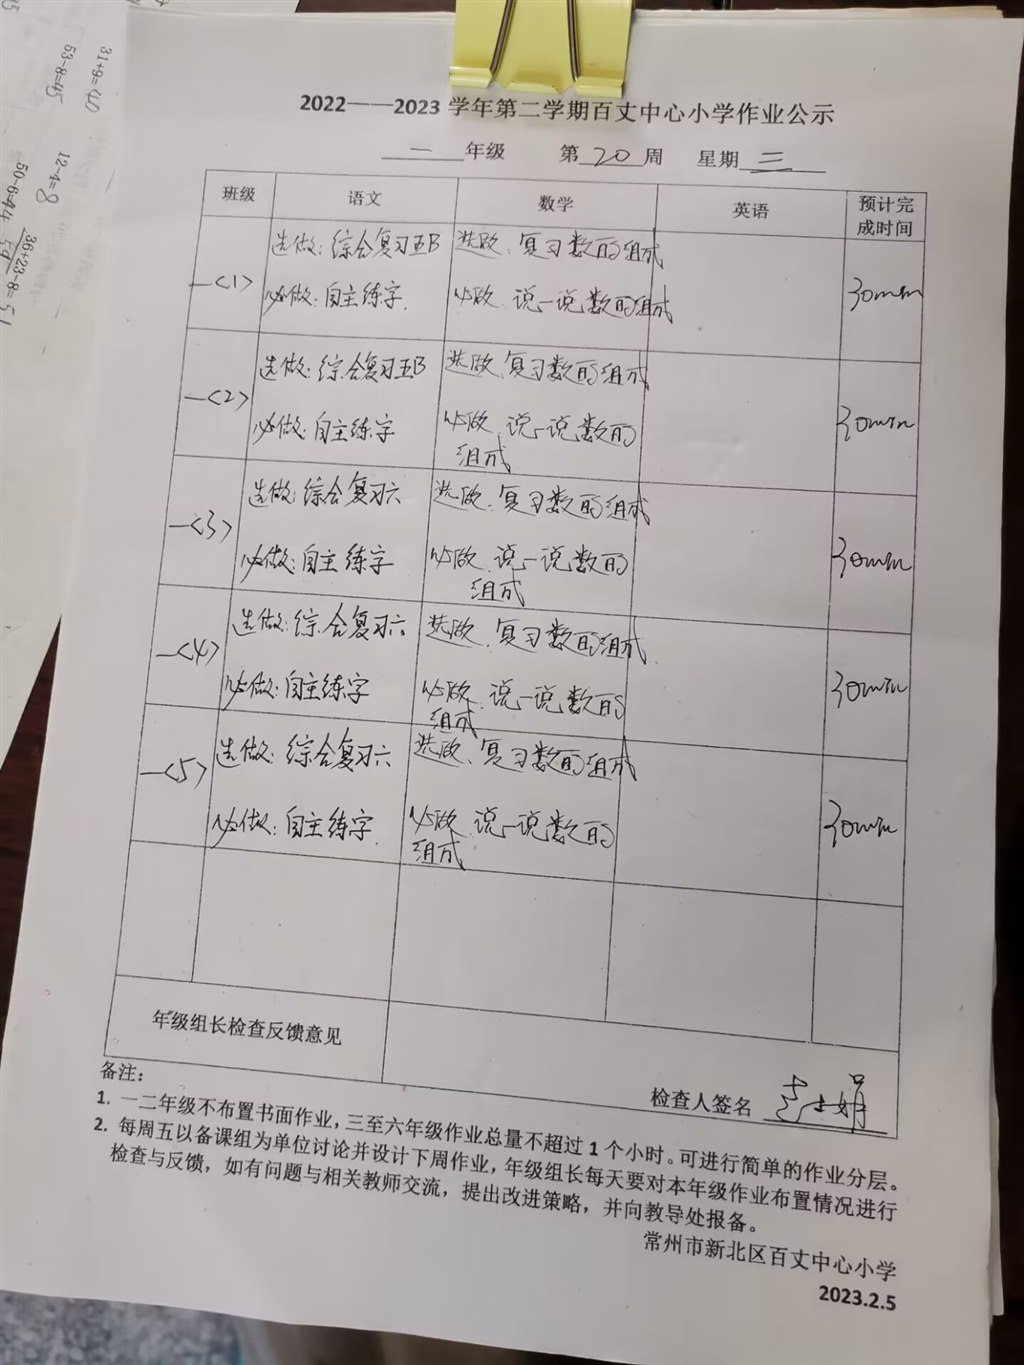 31+9=40
53-8=45
12-4=8
50-6=44
36+23-8=51
59
2022——2023 学年第二学期百丈中心小学作业公示
一 年级 第 20 周 星期 三
班级 语文 数学 英语 预计完成时间
一<1> 选做：综合复习五B 选做：复习数的组成 30min
必做：自主练字. 必做：说一说数的组成
一<2> 选做：综合复习五B 选做：复习数的组成 30min
必做：自主练字 必做：说一说数的
组成
一<3> 选做：综合复习六 选做：复习数的组成 30min
必做：自主练字 必做：说一说数的
组成
一<4> 选做：综合复习六 选做：复习数的组成 30min
必做：自主练字 必做：说一说数的
组成
一<5> 选做：综合复习六 选做：复习数的组成 30min
必做：自主练字. 必做：说一说数的
组成
年级组长检查反馈意见
检查人签名
备注：
1. 一二年级不布置书面作业，三至六年级作业总量不超过 1 个小时。可进行简单的作业分层。
2. 每周五以备课组为单位讨论并设计下周作业，年级组长每天要对本年级作业布置情况进行
检查与反馈，如有问题与相关教师交流，提出改进策略，并向教导处报备。
常州市新北区百丈中心小学
2023.2.5